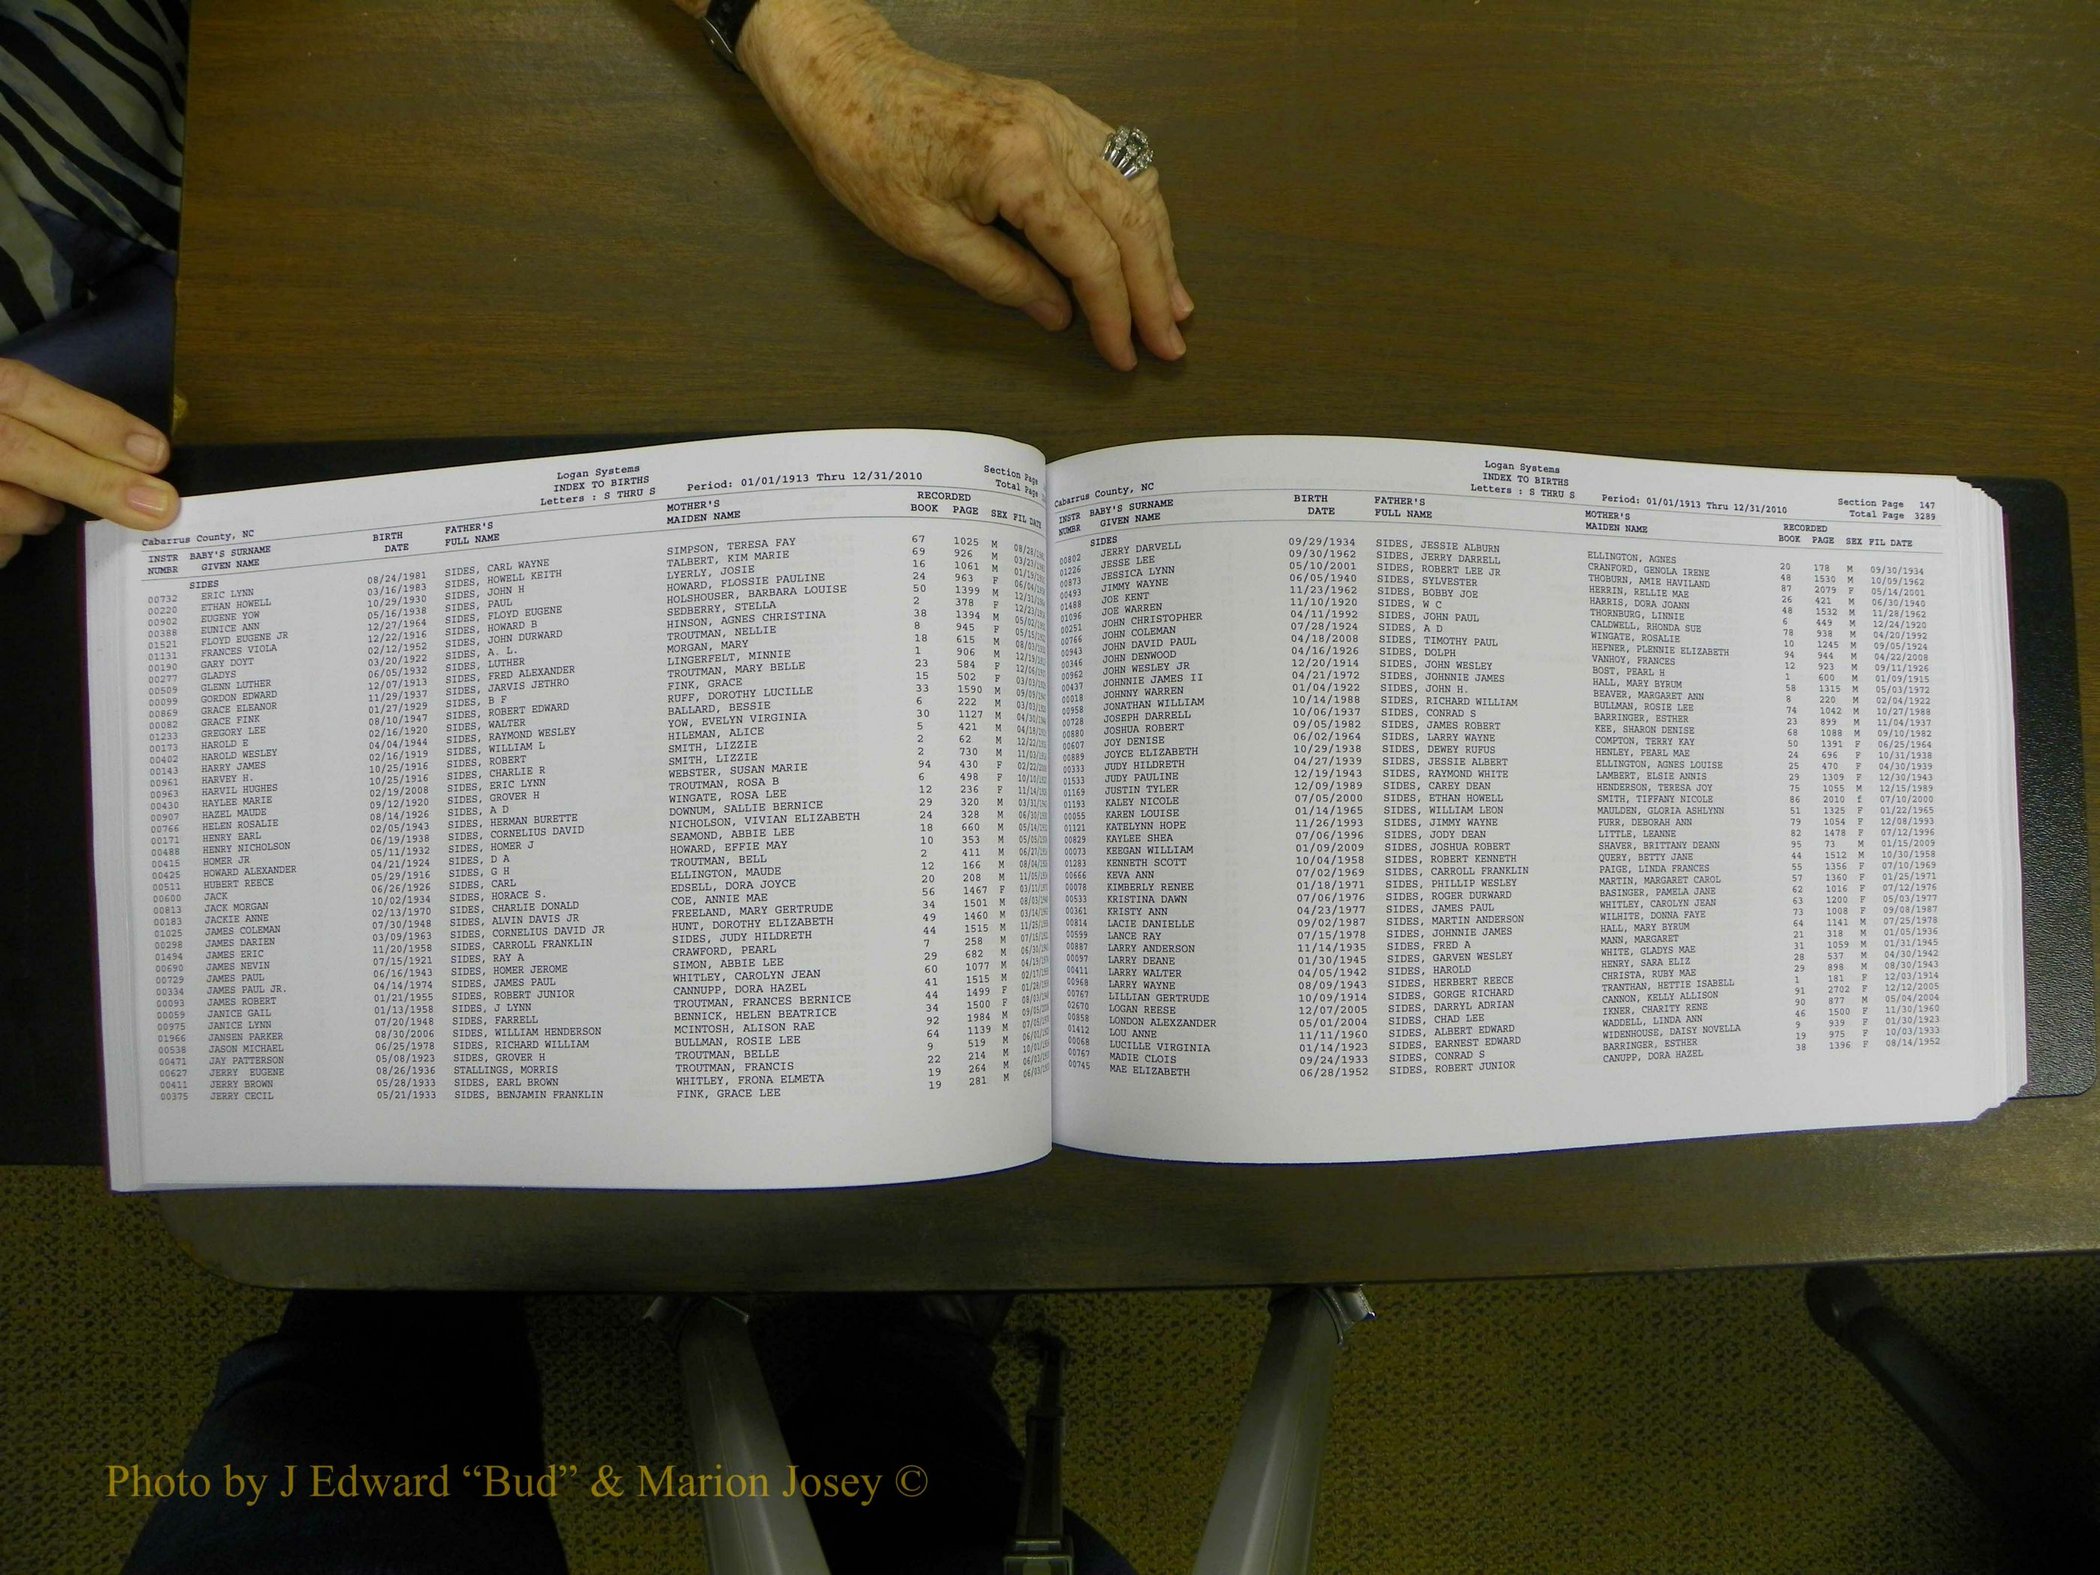 Logan Systems
INDEX TO BIRTHS
Letters : S THRU S Period: 01/01/1913 Thru 12/31/2010
Section Page
Total Page
Cabarrus County, NC
INSTR BABY'S SURNAME BIRTH FATHER'S MOTHER'S RECORDED
NUMBR GIVEN NAME DATE FULL NAME MAIDEN NAME BOOK PAGE SEX FIL DATE
SIDES
00732 ERIC LYNN 08/24/1981 SIDES, CARL WAYNE SIMPSON, TERESA FAY 67 1025 M
00220 ETHAN HOWELL 03/16/1983 SIDES, HOWELL KEITH TALBERT, KIM MARIE 69 926 M
00902 EUGENE YOW 10/29/1930 SIDES, JOHN H LYERLY, JOSIE 16 1061 M
00388 EUNICE ANN 05/16/1938 SIDES, PAUL HOWARD, FLOSSIE PAULINE 24 963 F
01521 FLOYD EUGENE JR 12/27/1964 SIDES, FLOYD EUGENE HOLSHOUSER, BARBARA LOUISE 50 1399 M
01131 FRANCES VIOLA 12/22/1916 SIDES, HOWARD B SEDBERRY, STELLA 2 378 F
00190 GARY DOYT 02/12/1952 SIDES, JOHN DURWARD HINSON, AGNES CHRISTINA 38 1394 M
00277 GLADYS 03/20/1922 SIDES, A. L. TROUTMAN, NELLIE 8 945 F
00509 GLENN LUTHER 06/05/1932 SIDES, LUTHER MORGAN, MARY 18 615 M
00099 GORDON EDWARD 12/07/1913 SIDES, FRED ALEXANDER LINGERFELT, MINNIE 1 906 M
00869 GRACE ELEANOR 11/29/1937 SIDES, JARVIS JETHRO TROUTMAN, MARY BELLE 23 584 F
00082 GRACE FINK 01/27/1929 SIDES, B F FINK, GRACE 15 502 F
01233 GREGORY LEE 08/10/1947 SIDES, ROBERT EDWARD RUFF, DOROTHY LUCILLE 33 1590 M
00173 HAROLD E 02/16/1920 SIDES, WALTER BALLARD, BESSIE 6 222 M
00402 HAROLD WESLEY 04/04/1944 SIDES, RAYMOND WESLEY YOW, EVELYN VIRGINIA 30 1127 M
00143 HARRY JAMES 02/16/1919 SIDES, WILLIAM L HILEMAN, ALICE 5 421 M
00961 HARVEY H. 10/25/1916 SIDES, ROBERT SMITH, LIZZIE 2 62 M
00963 HARVIL HUGHES 10/25/1916 SIDES, CHARLIE R SMITH, LIZZIE 2 730 M
00430 HAYLEE MARIE 02/19/2008 SIDES, ERIC LYNN WEBSTER, SUSAN MARIE 94 430 F
00907 HAZEL MAUDE 09/12/1920 SIDES, GROVER H TROUTMAN, ROSA B 6 498 F
00766 HELEN ROSALIE 08/14/1926 SIDES, A D WINGATE, ROSA LEE 12 236 F
00171 HENRY EARL 02/05/1943 SIDES, HERMAN BURETTE DOWNUM, SALLIE BERNICE 29 320 M
00488 HENRY NICHOLSON 06/19/1938 SIDES, CORNELIUS DAVID NICHOLSON, VIVIAN ELIZABETH 24 328 M
00415 HOMER JR 05/11/1932 SIDES, HOMER J SEAMOND, ABBIE LEE 18 660 M
00425 HOWARD ALEXANDER 04/21/1924 SIDES, D A HOWARD, EFFIE MAY 10 353 M
00511 HUBERT REECE 05/29/1916 SIDES, G H TROUTMAN, BELL 2 411 M
00600 JACK 06/26/1926 SIDES, CARL ELLINGTON, MAUDE 12 166 M
00813 JACK MORGAN 10/02/1934 SIDES, HORACE S. EDSELL, DORA JOYCE 20 208 M
00183 JACKIE ANNE 02/13/1970 SIDES, CHARLIE DONALD COE, ANNIE MAE 56 1467 F
01025 JAMES COLEMAN 07/30/1948 SIDES, ALVIN DAVIS JR FREELAND, MARY GERTRUDE 34 1501 M
00298 JAMES DARIEN 03/09/1963 SIDES, CORNELIUS DAVID JR HUNT, DOROTHY ELIZABETH 49 1460 M
01494 JAMES ERIC 11/20/1958 SIDES, CARROLL FRANKLIN SIDES, JUDY HILDRETH 44 1515 M
00690 JAMES NEVIN 07/15/1921 SIDES, RAY A CRAWFORD, PEARL 7 258 M
00729 JAMES PAUL 06/16/1943 SIDES, HOMER JEROME SIMON, ABBIE LEE 29 682 M
00334 JAMES PAUL JR. 04/14/1974 SIDES, JAMES PAUL WHITLEY, CAROLYN JEAN 60 1077 M
00093 JAMES ROBERT 01/21/1955 SIDES, ROBERT JUNIOR CANNUPP, DORA HAZEL 41 1515 M
00059 JANICE GAIL 01/13/1958 SIDES, J LYNN TROUTMAN, FRANCES BERNICE 44 1499 F
00975 JANICE LYNN 07/20/1948 SIDES, FARRELL BENNICK, HELEN BEATRICE 34 1500 F
01966 JANSEN PARKER 08/30/2006 SIDES, WILLIAM HENDERSON MCINTOSH, ALISON RAE 92 1984 M
00538 JASON MICHAEL 06/25/1978 SIDES, RICHARD WILLIAM BULLMAN, ROSIE LEE 64 1139 M
00471 JAY PATTERSON 05/08/1923 SIDES, GROVER H TROUTMAN, BELLE 9 519 M
00627 JERRY EUGENE 08/26/1936 STALLINGS, MORRIS TROUTMAN, FRANCIS 22 214 M
00411 JERRY BROWN 05/28/1933 SIDES, EARL BROWN WHITLEY, FRONA ELMETA 19 264 M
00375 JERRY CECIL 05/21/1933 SIDES, BENJAMIN FRANKLIN FINK, GRACE LEE 19 281 M
Logan Systems
INDEX TO BIRTHS
Letters : S THRU S Period: 01/01/1913 Thru 12/31/2010
Section Page 147
Total Page 3289
Cabarrus County, NC
INSTR BABY'S SURNAME BIRTH FATHER'S MOTHER'S RECORDED
NUMBR GIVEN NAME DATE FULL NAME MAIDEN NAME BOOK PAGE SEX FIL DATE
SIDES
00802 JERRY DARVELL 09/29/1934 SIDES, JESSIE ALBURN ELLINGTON, AGNES 20 178 M 09/30/1934
01226 JESSE LEE 09/30/1962 SIDES, JERRY DARRELL CRANFORD, GENOLA IRENE 48 1530 M 10/09/1962
00873 JESSICA LYNN 05/10/2001 SIDES, ROBERT LEE JR THOBURN, AMIE HAVILAND 87 2079 F 05/14/2001
00493 JIMMY WAYNE 06/05/1940 SIDES, SYLVESTER HERRIN, RELLIE MAE 26 421 M 06/30/1940
01488 JOE KENT 11/23/1962 SIDES, BOBBY JOE HARRIS, DORA JOANN 48 1532 M 11/28/1962
01096 JOE WARREN 11/10/1920 SIDES, W C THORNBURG, LINNIE 6 449 M 12/24/1920
00251 JOHN CHRISTOPHER 04/11/1992 SIDES, JOHN PAUL CALDWELL, RHONDA SUE 78 938 M 04/20/1992
00766 JOHN COLEMAN 07/28/1924 SIDES, A D WINGATE, ROSALIE 10 1245 M 09/05/1924
00943 JOHN DAVID PAUL 04/18/2008 SIDES, TIMOTHY PAUL HEFNER, PLENNIE ELIZABETH 94 944 M 04/22/2008
00346 JOHN DENWOOD 04/16/1926 SIDES, DOLPH VANHOY, FRANCES 12 923 M 09/11/1926
00962 JOHN WESLEY JR 12/20/1914 SIDES, JOHN WESLEY BOST, PEARL H 1 600 M 01/09/1915
00437 JOHNNIE JAMES II 04/21/1972 SIDES, JOHNNIE JAMES HALL, MARY BYRUM 58 1315 M 05/03/1972
00018 JOHNNY WARREN 01/04/1922 SIDES, JOHN H. BEAVER, MARGARET ANN 8 220 M 02/04/1922
00958 JONATHAN WILLIAM 10/14/1988 SIDES, RICHARD WILLIAM BULLMAN, ROSIE LEE 74 1042 M 10/27/1988
00728 JOSEPH DARRELL 10/06/1937 SIDES, CONRAD S BARRINGER, ESTHER 23 899 M 11/04/1937
00880 JOSHUA ROBERT 09/05/1982 SIDES, JAMES ROBERT KEE, SHARON DENISE 68 1088 M 09/10/1982
00607 JOY DENISE 06/02/1964 SIDES, LARRY WAYNE COMPTON, TERRY KAY 50 1391 F 06/25/1964
00889 JOYCE ELIZABETH 10/29/1938 SIDES, DEWEY RUFUS HENLEY, PEARL MAE 24 696 F 10/31/1938
00333 JUDY HILDRETH 04/27/1939 SIDES, JESSIE ALBERT ELLINGTON, AGNES LOUISE 25 470 F 04/30/1939
01533 JUDY PAULINE 12/19/1943 SIDES, RAYMOND WHITE LAMBERT, ELSIE ANNIS 29 1309 F 12/30/1943
01169 JUSTIN TYLER 12/09/1989 SIDES, CAREY DEAN HENDERSON, TERESA JOY 75 1055 M 12/15/1989
01193 KALEY NICOLE 07/05/2000 SIDES, ETHAN HOWELL SMITH, TIFFANY NICOLE 86 2010 f 07/10/2000
00055 KAREN LOUISE 01/14/1965 SIDES, WILLIAM LEON MAULDEN, GLORIA ASHLYNN 51 1325 F 01/22/1965
01121 KATELYNN HOPE 11/26/1993 SIDES, JIMMY WAYNE FURR, DEBORAH ANN 79 1054 F 12/08/1993
00829 KAYLEE SHEA 07/06/1996 SIDES, JODY DEAN LITTLE, LEANNE 82 1478 F 07/12/1996
00073 KEEGAN WILLIAM 01/09/2009 SIDES, JOSHUA ROBERT SHAVER, BRITTANY DEANN 95 73 M 01/15/2009
01283 KENNETH SCOTT 10/04/1958 SIDES, ROBERT KENNETH QUERY, BETTY JANE 44 1512 M 10/30/1958
00666 KEVA ANN 07/02/1969 SIDES, CARROLL FRANKLIN PAIGE, LINDA FRANCES 55 1356 F 07/10/1969
00078 KIMBERLY RENEE 01/18/1971 SIDES, PHILLIP WESLEY MARTIN, MARGARET CAROL 57 1360 F 01/25/1971
00533 KRISTINA DAWN 07/06/1976 SIDES, ROGER DURWARD BASINGER, PAMELA JANE 62 1016 F 07/12/1976
00361 KRISTY ANN 04/23/1977 SIDES, JAMES PAUL WHITLEY, CAROLYN JEAN 63 1200 F 05/03/1977
00814 LACIE DANIELLE 09/02/1987 SIDES, MARTIN ANDERSON WILHITE, DONNA FAYE 73 1008 F 09/08/1987
00599 LANCE RAY 07/15/1978 SIDES, JOHNNIE JAMES HALL, MARY BYRUM 64 1141 M 07/25/1978
00887 LARRY ANDERSON 11/14/1935 SIDES, FRED A MANN, MARGARET 21 318 M 01/05/1936
00097 LARRY DEANE 01/30/1945 SIDES, GARVEN WESLEY WHITE, GLADYS MAE 31 1059 M 01/31/1945
00411 LARRY WALTER 04/05/1942 SIDES, HAROLD HENRY, SARA ELIZ 28 537 M 04/30/1942
00968 LARRY WAYNE 08/09/1943 SIDES, HERBERT REECE CHRISTA, RUBY MAE 29 898 M 08/30/1943
00767 LILLIAN GERTRUDE 10/09/1914 SIDES, GORGE RICHARD TRANTHAN, HETTIE ISABELL 1 181 F 12/03/1914
02670 LOGAN REESE 12/07/2005 SIDES, DARRYL ADRIAN CANNON, KELLY ALLISON 91 2702 F 12/12/2005
00858 LONDON ALEXZANDER 05/01/2004 SIDES, CHAD LEE IKNER, CHARITY RENE 90 877 M 05/04/2004
01412 LOU ANNE 11/11/1960 SIDES, ALBERT EDWARD WADDELL, LINDA ANN 46 1500 F 11/30/1960
00068 LUCILLE VIRGINIA 01/14/1923 SIDES, EARNEST EDWARD WIDENHOUSE, DAISY NOVELLA 9 939 F 01/30/1923
00767 MADIE CLOIS 09/24/1933 SIDES, CONRAD S BARRINGER, ESTHER 19 975 F 10/03/1933
00745 MAE ELIZABETH 06/28/1952 SIDES, ROBERT JUNIOR CANUPP, DORA HAZEL 38 1396 F 08/14/1952
Photo by J Edward “Bud” & Marion Josey ©